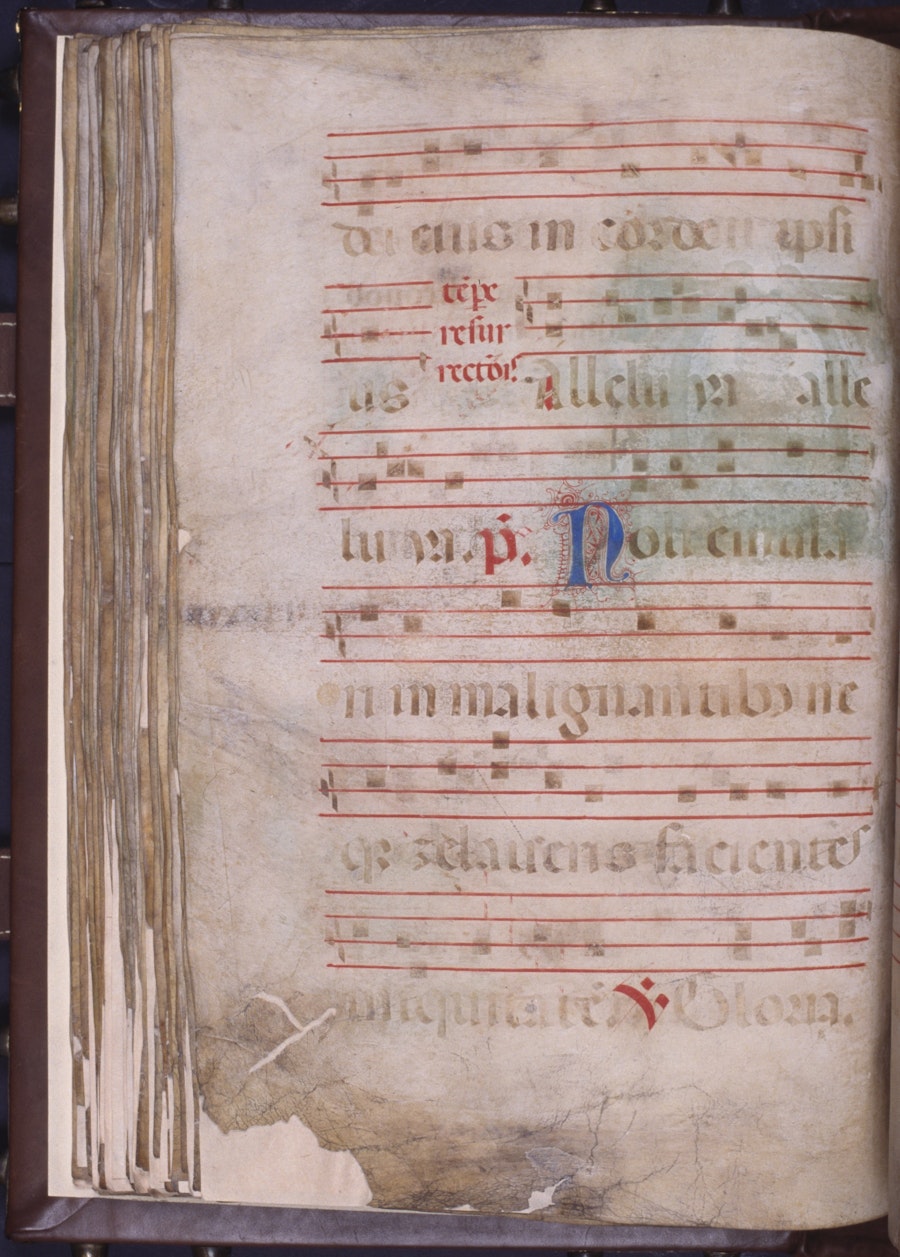 dei eius in corde ipsi
tẽpe
resur
rectõis
us Allelu ya alle
luya. p̃. Noli emula
ri in malignantibꝯ ne
qꝫ zelaueris facientes
iniquitatẽ. ℣ Gloria.